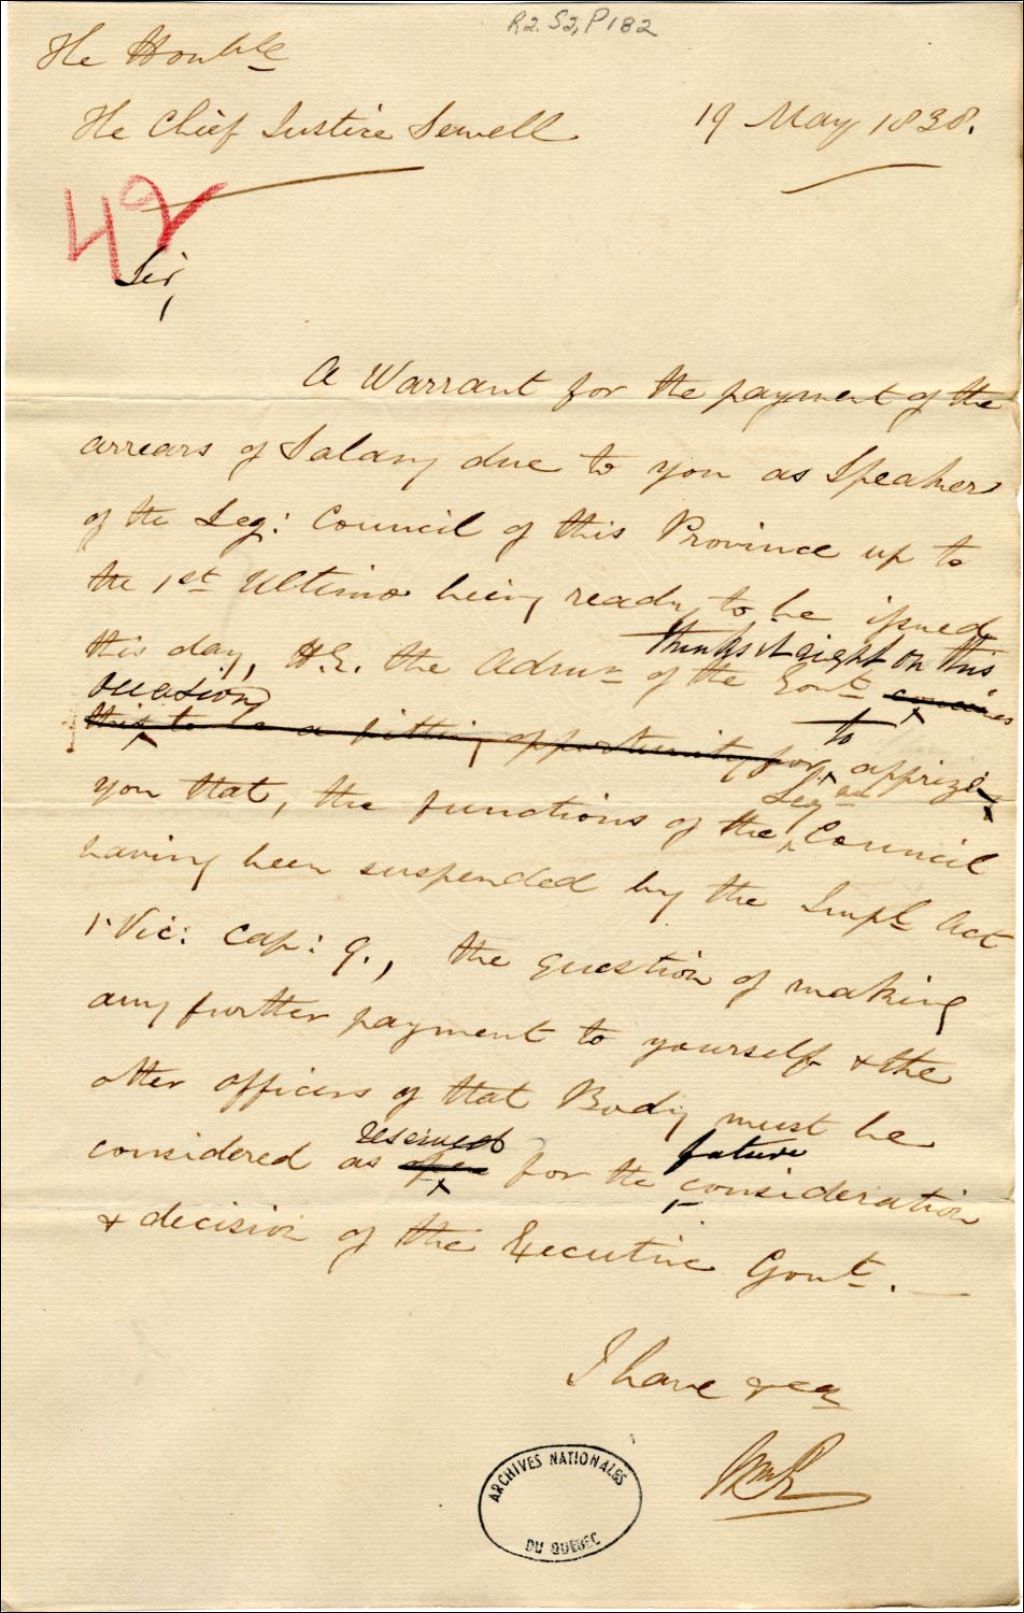 R2. S2, P182
The Honble
The Chief Justice Sewell 19 May 1838.
42
Sir,
A Warrant for the payment of the
arrears of Salary due to you as Speaker
of the Leg: Council of this Province up to
the 1st Ultimo being ready to be issued
thinks it right on this
this day, H.E. the Admr of the Govt conceives
occasion
this to be a fitting opportunity for to apprizing
Legve
you that, the functions of the Council
having been suspended by the Impl Act
1. Vic: Cap: 9., the question of making
any further payment to yourself & the
other officers of that Body must be
reserved future
considered as open for the consideration
& decision of the Executive Govt. —
I have &ca
WmR
ARCHIVES NATIONALES
DU QUÉBEC